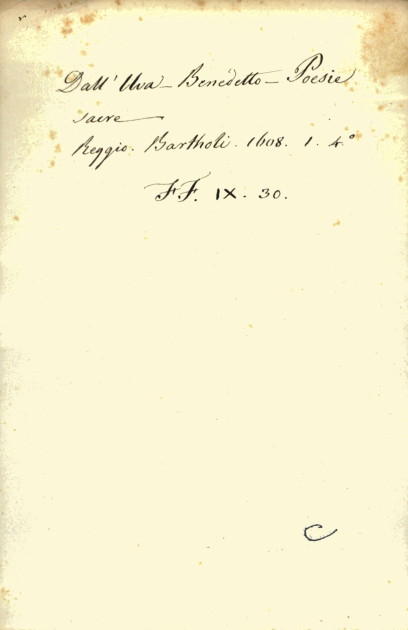 Dall' Uva - Benedetto - Poesie
sacre
Reggio. Bartholi. 1608. 1. 4.°
FF. IX. 30.
C